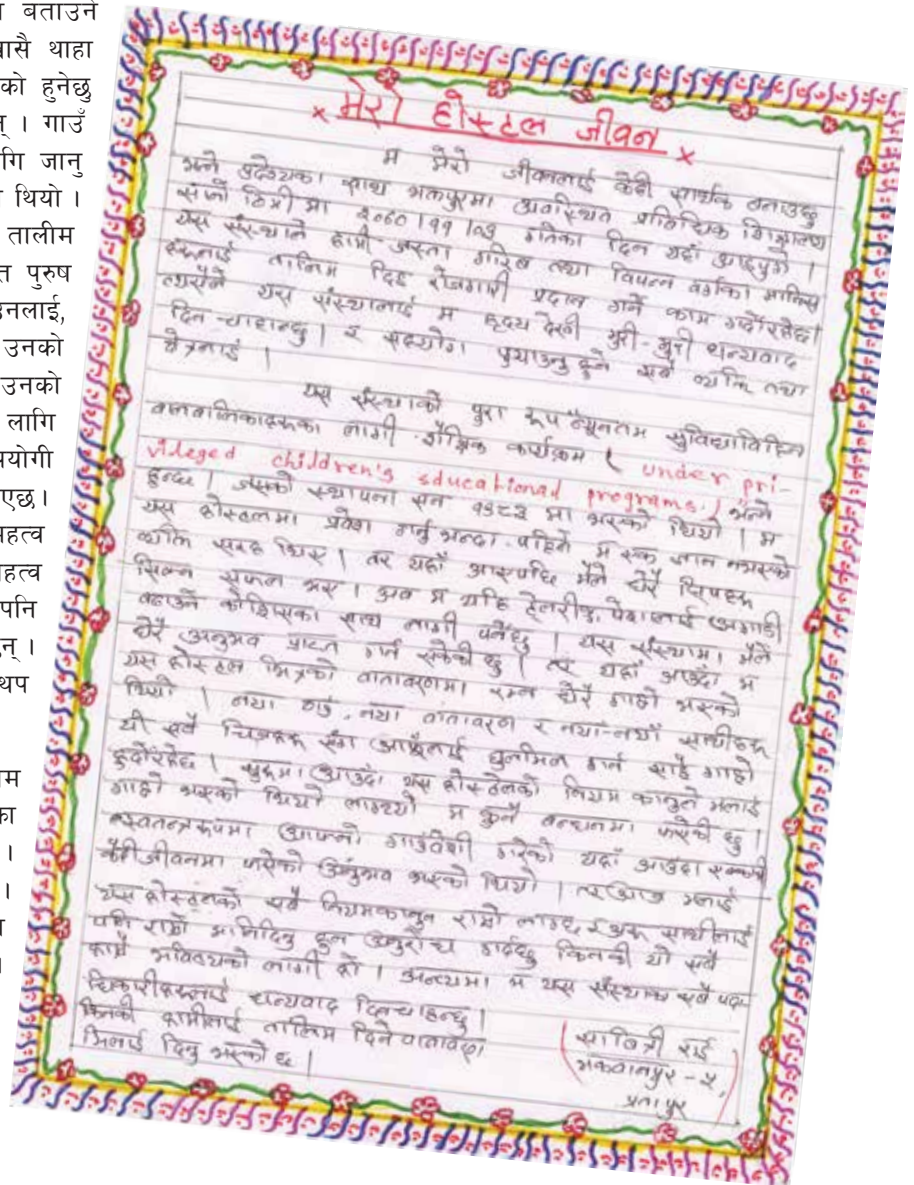 बताउने
थाहा
को हुनेछ
न् । गाउँ
गि जानु
थियो ।
तालीम
त पुरुष
उनको
उनको
लागि
एछ।
महत्व
पनि
थप
× मेरो होस्टल जीवन ×
म मेरो जीवनलाई केही सार्थक बनाउछु
भन्ने उद्देश्यका साथ भक्तपुरमा अवस्थित प्राविधिक शिक्षालय
सानो ठिमी मा २०६० ।११ । गतेका दिन यहाँ आइपुगें ।
यस संस्थाले हामी जस्ता गरिब तथा विपन्न वर्गका मानिस
हरुलाई तालिम दिइ रोजगारी प्रदान गर्ने काम गर्दोरहेछ।
त्यसैले यस संस्थालाई म हृदय देखी भुरी-भुरी धन्यवाद
दिन चाहान्छु। र सहयोग पुर्याउनु हुने सबै व्यक्ति तथा
क्षेत्रलाई ।
यस संस्थाको पुरा रुप न्यूनतम सुविधाविहिन
बालबालिकाहरुका लागी शैक्षिक कार्यक्रम ( under pri-
vileged children's sducational programs.) भन्ने
हुन्छ । जसको स्थापना सन १९८२ मा भएको थियो । म
यस होस्टलमा प्रवेश गर्नु भन्दा पहिले म एक ज्ञान नभएको
व्यक्ति सरह थिए । तर यहाँ आएपछि मैले धेरै सिपहरु
सिक्न सफल भए । अब म यहि पेशालाई अगाडी
बढाउने कोशिसका साथ लागी पर्नेछु । यस संस्थामा मैले
धेरै अनुभव प्राप्त गर्न सकेकी छु । तर यहाँ आउँदा म
यस होस्टल भित्रको वातावरणमा रम्न धेरै गाह्रो भएको
थियो । नयाँ ठाउँ, नयाँ वातावरण र नयाँ-नयाँ साथीहरु
यी सबै चिजहरु संग आफुलाई घुलमिल गर्न साह्रै गाह्रो
हुदोरहेछ । सुरुमा आउँदा यस होस्टेलको नियम कानुनले मलाई
गाह्रो भएको थियो लाग्थ्यो म कुनै बन्धनमा फसेकी छु ।
स्वतन्त्ररुपमा आफ्नो गाउँवेशी गरेको यहाँ आउँदा एक्कासी
कैदीजीवनमा फसेको अनुभव भएको थियो । तर आज मलाई
यस होस्टलको सबै नियमकानुन राम्रो लाग्छ र अरु साथीलाई
पनि राम्रो मानिदिनु हुन अनुरोध गर्दछु किनकी यो सबै
हाम्रै भविष्यको लागी हो । अन्त्यमा म यस संस्थाका सबै पदा
धिकारीहरुलाई धन्यवाद दिनचाहन्छु ।
किनकी हामीलाई तालिम दिने वातावरण
मिलाई दिनु भएको छ ।
( सावित्री राई
मकवानपुर - ५,
)